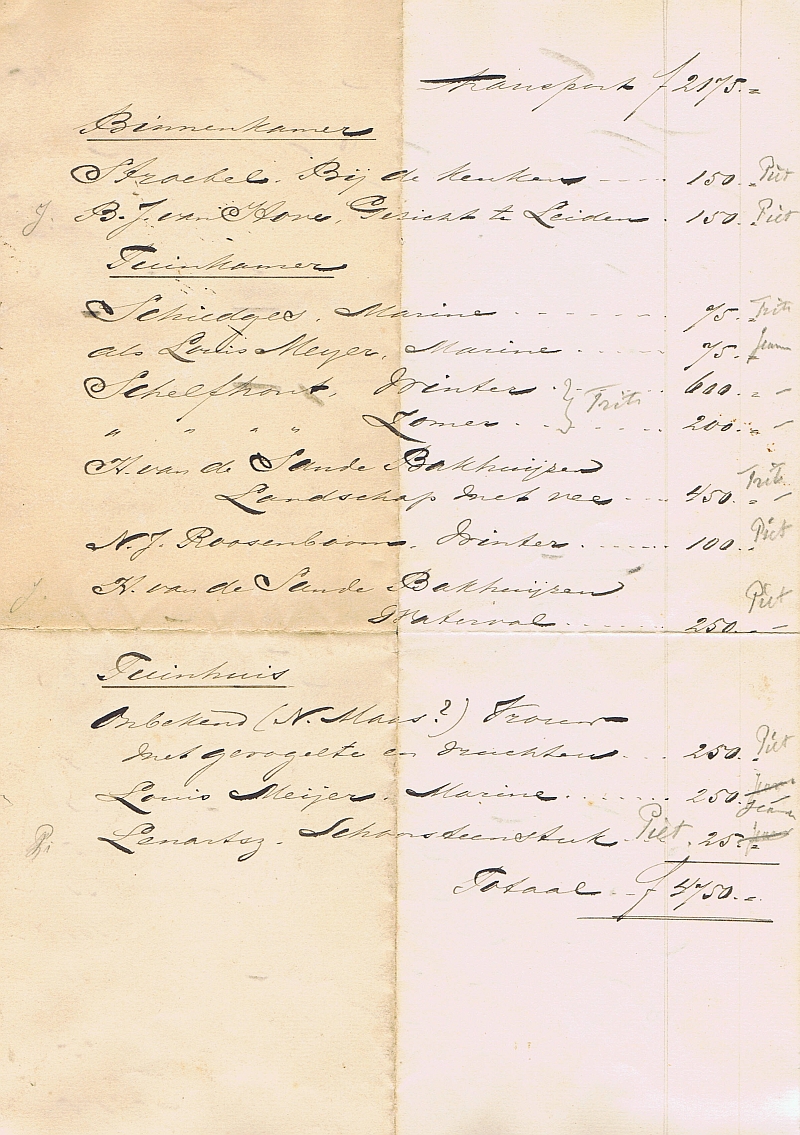 Transport f 2175.-
Binnenkamer
Stroebel. Bij de keuken 150.- Piet
J. B. J. van Hove, Gezicht te Leiden. 150.- Piet
Tuinkamer
Schiedges, Marine 75.- Frits
als Louis Meyer, Marine 75.- Jeann
Schelfhout, Winter 600.-
" " " " Zomer 200.- Frits
H. van de Sande Bakhuijzen
Landschap met vee 450.- Frits
N. J. Roosenboom, Winter 100.- Piet
J. H. van de Sande Bakhuijzen
Waterval 250.- Piet
Tuinhuis
Onbekend (N. Maas?) Vrouw
met gevogelte en vruchten 250. Piet
Louis Meijer. Marine 250. Jeann
P. Lenartsz. Schoorsteenstuk Piet 25.-
Totaal f 4750.-